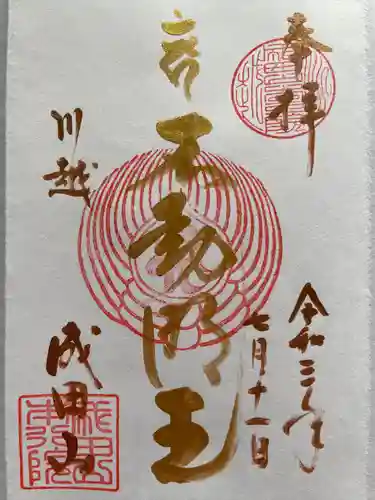 奉拝
令和三年
七月十一日
不動明王
川越
成田山